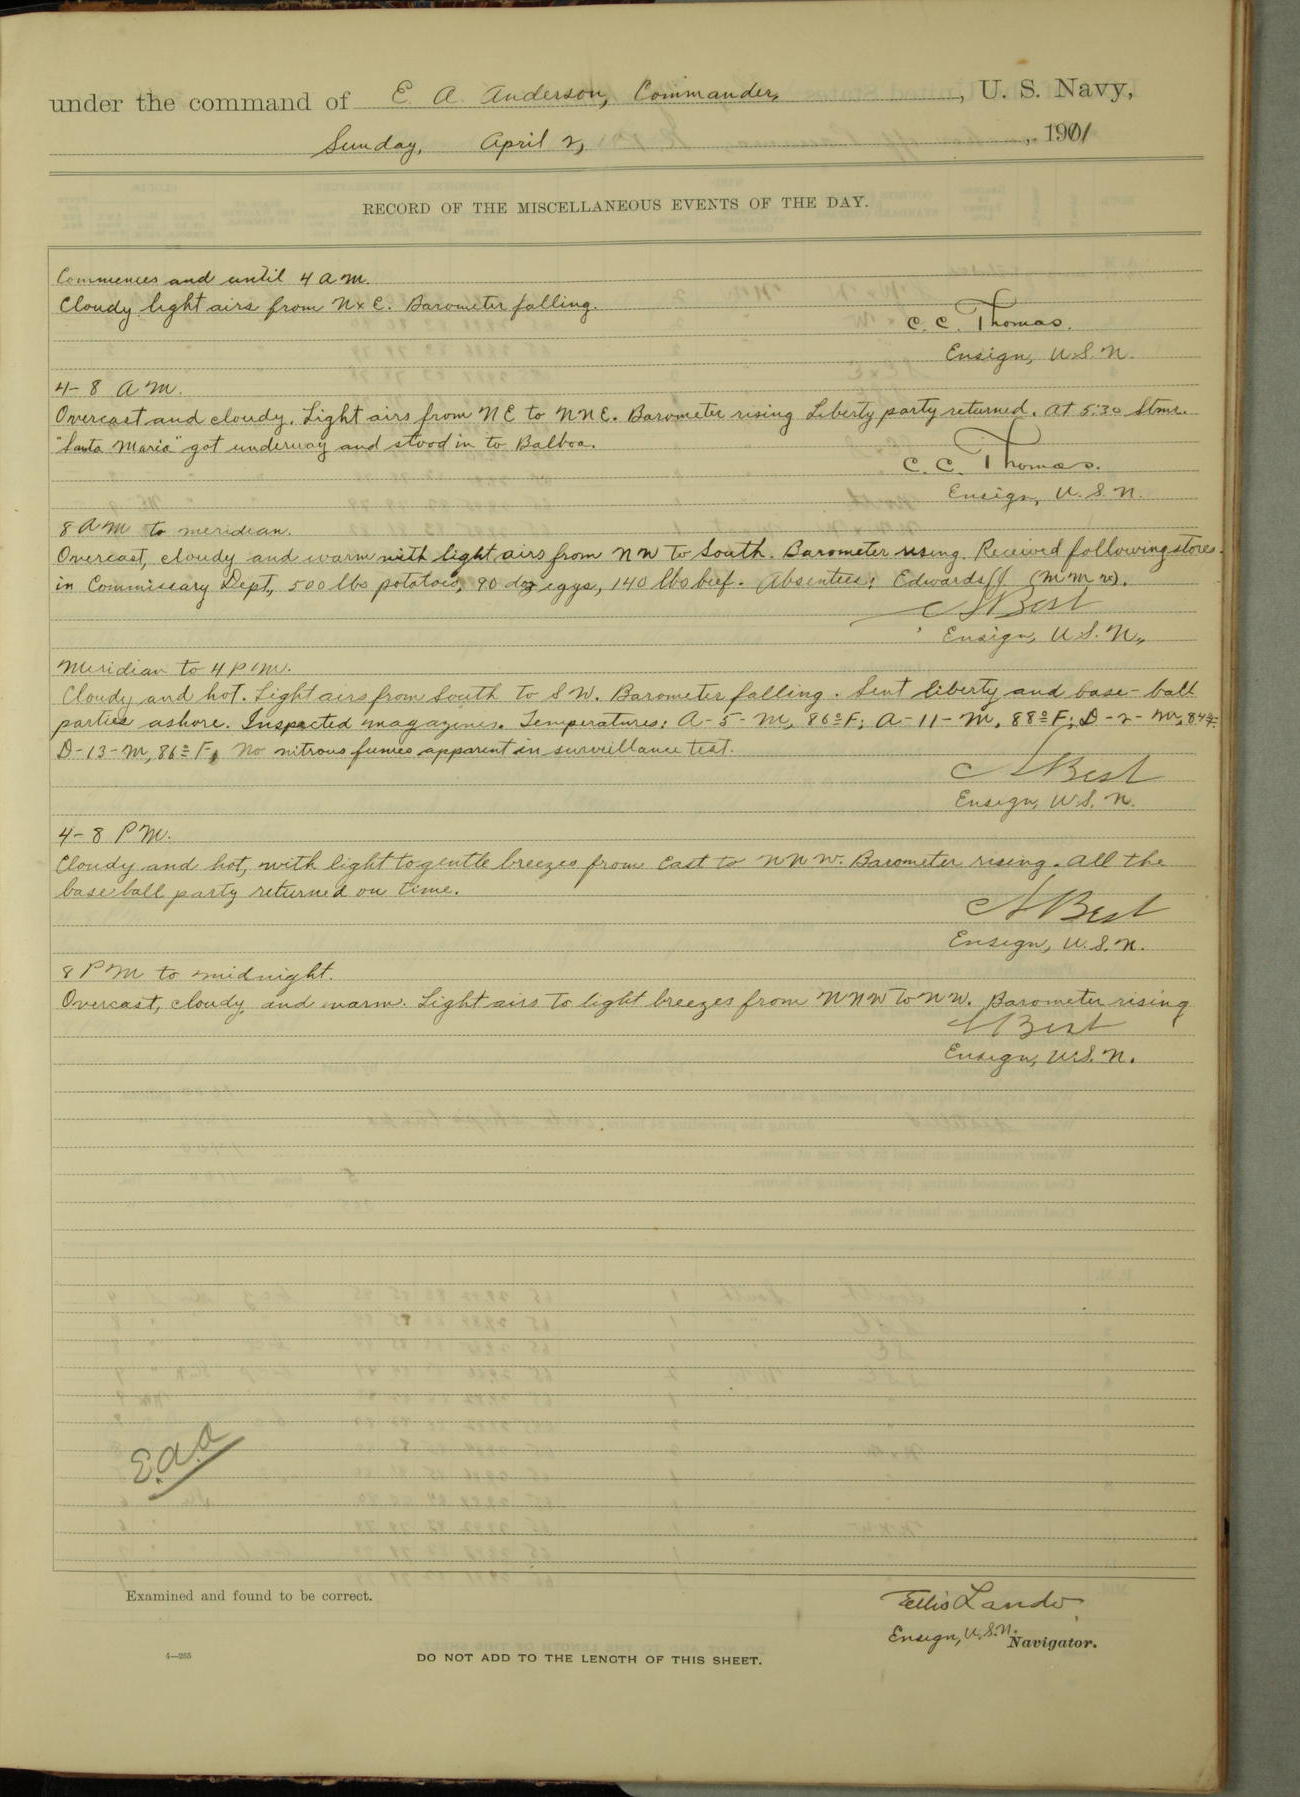 under the command of E. A. Anderson, Commander, , U. S. Navy,
Sunday, April 2, , 1911
RECORD OF THE MISCELLANEOUS EVENTS OF THE DAY.
Commences and until 4 a.m.
Cloudy light airs from NxE. Barometer falling.
C. C. Thomas.
Ensign, U.S.N.
4-8 AM.
Overcast and cloudy. Light airs from NE to NNE. Barometer rising Liberty party returned. At 5:30 Stmr.
"Santa Maria" got underway and stood in to Balboa.
C. C. Thomas.
Ensign, U.S.N.
8 AM to meridian.
Overcast, cloudy and warm with light airs from NW to South. Barometer rising. Received following stores
in Commissary Dept., 500 lbs potatoes, 90 doz eggs, 140 lbs beef. Absentees: Edwards
Best
Ensign, U.S.N.,
Meridian to 4 P.M.
Cloudy and hot. Light airs from South to SW. Barometer falling. Sent liberty and base-ball
parties ashore. Inspected magazines. Temperatures: A-5-M, 86°F; A-11-M, 88°F; D-2-M, 84°F
D-13-M, 86° F, No nitrous fumes apparent in surveillance test.
Best
Ensign, U.S.N.
4-8 P.M.
Cloudy and hot, with light to gentle breezes from East to NNW. Barometer rising. All the
baseball party returned on time.
Best
Ensign, U.S.N.
8 PM to midnight.
Overcast, cloudy, and warm. Light airs to light breezes from NNW to NW. Barometer rising
Best
Ensign, U.S.N.
E.A.A
Examined and found to be correct.
Ellis Lando,
Ensign, U.S.N. Navigator.
4—255
DO NOT ADD TO THE LENGTH OF THIS SHEET.